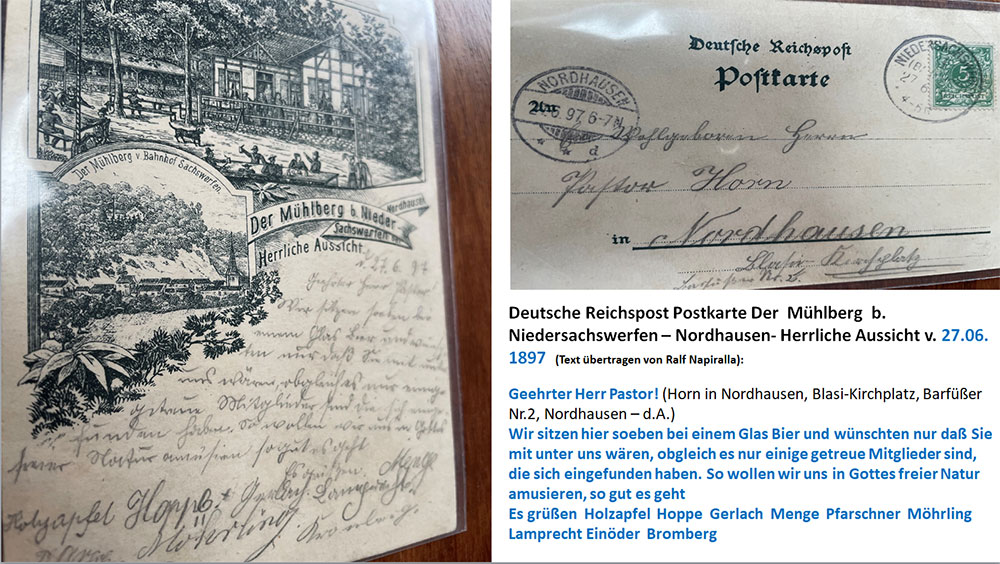 Der Mühlberg v. Bahnhof Sachswerfen.
Der Mühlberg b. Nieder
Sachswerfen
Nordhausen
Herrliche Aussicht
d. 27.6.97
Geehrter Herr Pastor
Wir sitzen soeben bei
einem Glas Bier und wünsch
ten nur daß Sie mit unter
uns wären, obgleich es nur einige
getreue Mitglieder sind die sich einge
funden haben. So wollen wir uns in Gottes
freier Natur amusieren so gut es geht
Es grüßen Menge
Holzapfel Hoppe Gerlach Lamprecht
Möhrling
Deutsche Reichspost
Postkarte
NORDHAUSEN
6.97. 6-7N
d
NIEDERSACHS
27
6
4-5N
5
An
Wohlgeboren Herrn
Pastor Horn
in Nordhausen
Blasii Kirchplatz
Deutsche Reichspost Postkarte Der Mühlberg b.
Niedersachswerfen – Nordhausen- Herrliche Aussicht v. 27.06.
1897 (Text übertragen von Ralf Napiralla):
Geehrter Herr Pastor! (Horn in Nordhausen, Blasi-Kirchplatz, Barfüßer
Nr.2, Nordhausen – d.A.)
Wir sitzen hier soeben bei einem Glas Bier und wünschten nur daß Sie
mit unter uns wären, obgleich es nur einige getreue Mitglieder sind,
die sich eingefunden haben. So wollen wir uns in Gottes freier Natur
amusieren, so gut es geht
Es grüßen Holzapfel Hoppe Gerlach Menge Pfarschner Möhrling
Lamprecht Einöder Bromberg